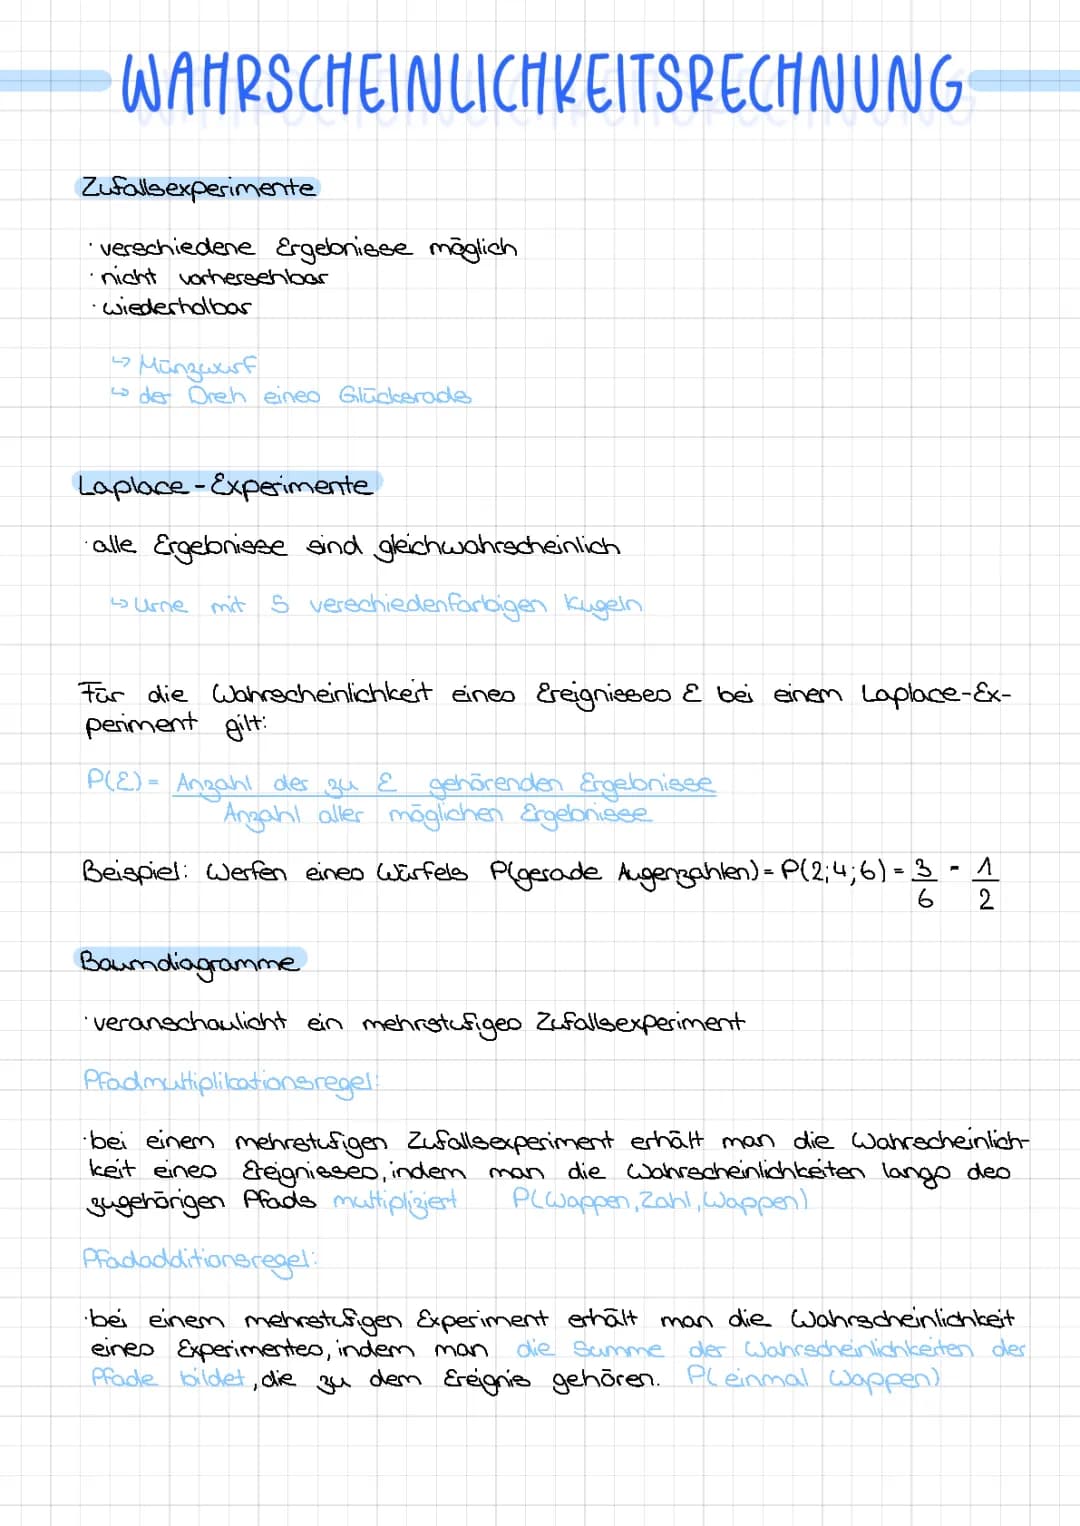 WAHRSCHEINLICHKEITSRECHNUNG
Zufallsexperimente
· verschiedene Ergebnisse möglich
· nicht vorhersehbar
· wiederholbar
↳ Münzwurf
↳ der Dreh eines Glücksrads
Laplace - Experimente
· alle Ergebnisse sind gleichwahrscheinlich
↳ Urne mit 5 verschiedenfarbigen Kugeln
Für die Wahrscheinlichkeit eines Ereignisses E bei einem Laplace-Ex-
periment gilt:
P(E) = Anzahl der zu E gehörenden Ergebnisse
Anzahl aller möglichen Ergebnisse
Beispiel: Werfen eines Würfels P(gerade Augenzahlen) = P(2;4;6) = 3/6 = 1/2
Baumdiagramme
· veranschaulicht ein mehrstufiges Zufallsexperiment
Pfadmultiplikationsregel:
· bei einem mehrstufigen Zufallsexperiment erhält man die Wahrscheinlich-
keit eines Ereignisses, indem man die Wahrscheinlichkeiten langs des
zugehörigen Pfads multipliziert P(Wappen, Zahl, Wappen)
Pfadadditionsregel:
· bei einem mehrstufigen Experiment erhält man die Wahrscheinlichkeit
eines Experimentes, indem man die Summe der Wahrscheinlichkeiten der
Pfade bildet, die zu dem Ereignis gehören. P(einmal Wappen)